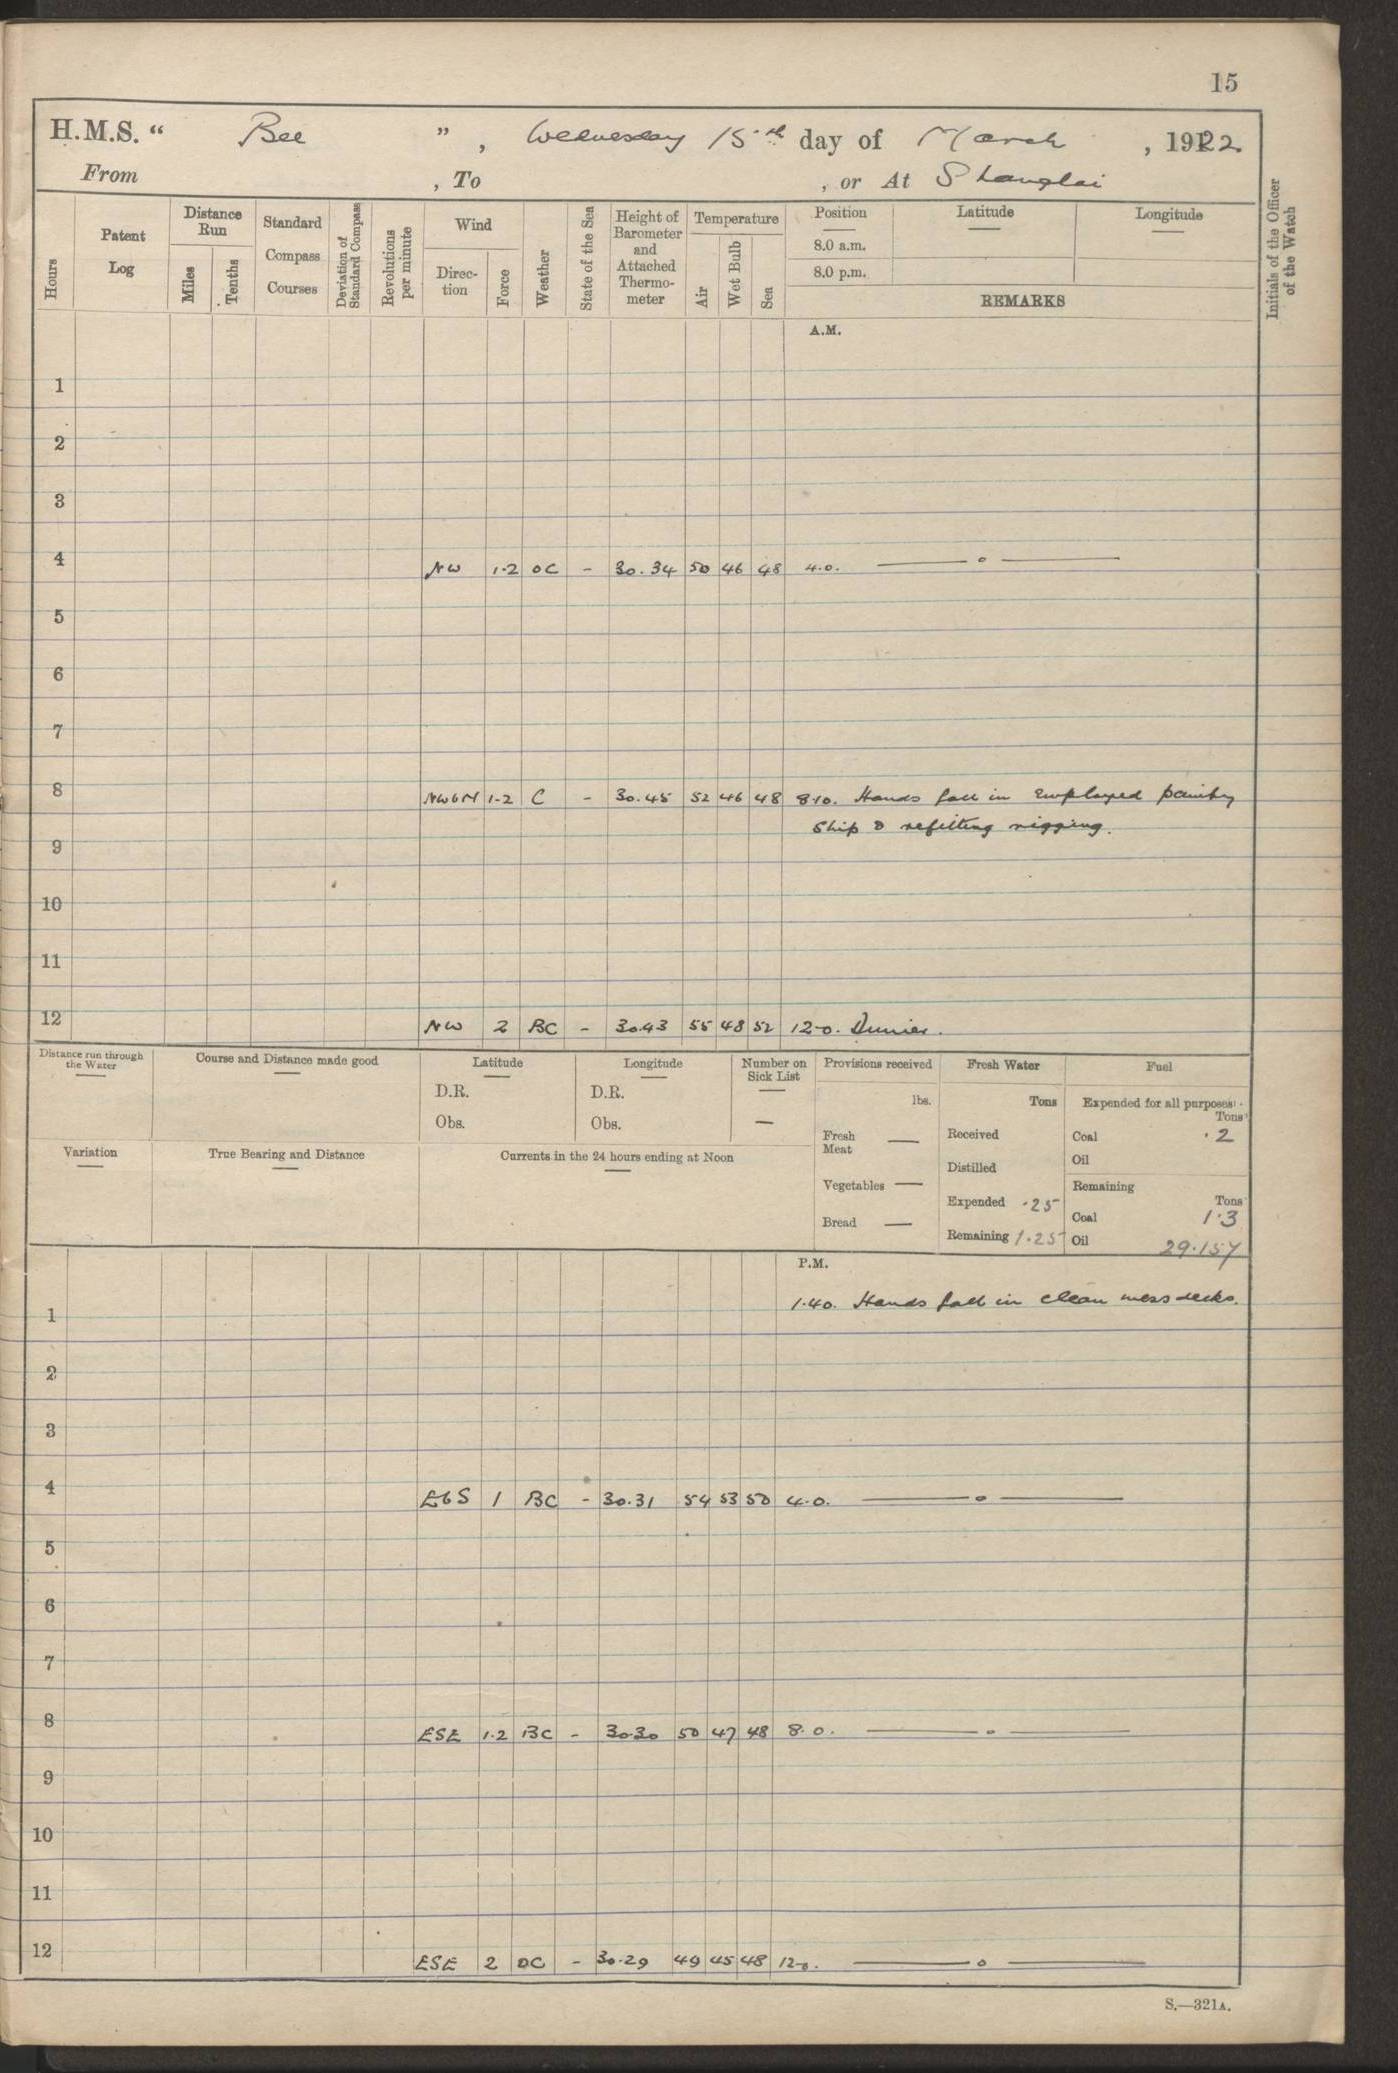 15
H.M.S. “ Bee ” , Wednesday 15th day of March , 1922.
From , To , or At Shanghai
Hours
Patent Log
Distance Run
Miles
Tenths
Standard Compass Courses
Deviation of Standard Compass
Revolutions per minute
Wind
Direc-tion
Force
Weather
State of the Sea
Height of Barometer and Attached Thermo-meter
Temperature
Air
Wet Bulb
Sea
Position
8.0 a.m.
8.0 p.m.
Latitude
Longitude
REMARKS
Initials of the Officer of the Watch
A.M.
1
2
3
4 NW 1·2 OC - 30.34 50 46 48 4.0. — o —
5
6
7
8 NWbN 1-2 C - 30.45 52 46 48 8.10. Hands fall in employed painting
ship & refitting rigging.
9
10
11
12 NW 2 BC - 30.43 55 48 52 12-0. Dinner.
Distance run through the Water
Course and Distance made good
Latitude
D.R.
Obs.
Longitude
D.R.
Obs.
Number on Sick List
—
Variation
True Bearing and Distance
Currents in the 24 hours ending at Noon
Provisions received
lbs.
Fresh Meat —
Vegetables —
Bread —
Fresh Water
Tons
Received
Distilled
Expended ·25
Remaining 1·25
Fuel
Expended for all purposes:-
Tons
Coal ·2
Oil
Remaining
Tons
Coal 1·3
Oil 29·157
P.M.
1·40. Hands fall in clean mess decks.
1
2
3
4 EbS 1 BC - 30.31 54 53 50 4.0. — o —
5
6
7
8 ESE 1·2 BC - 30.30 50 47 48 8.0. — o —
9
10
11
12 ESE 2 OC - 30.29 49 45 48 12-0. — o —
S.—321A.